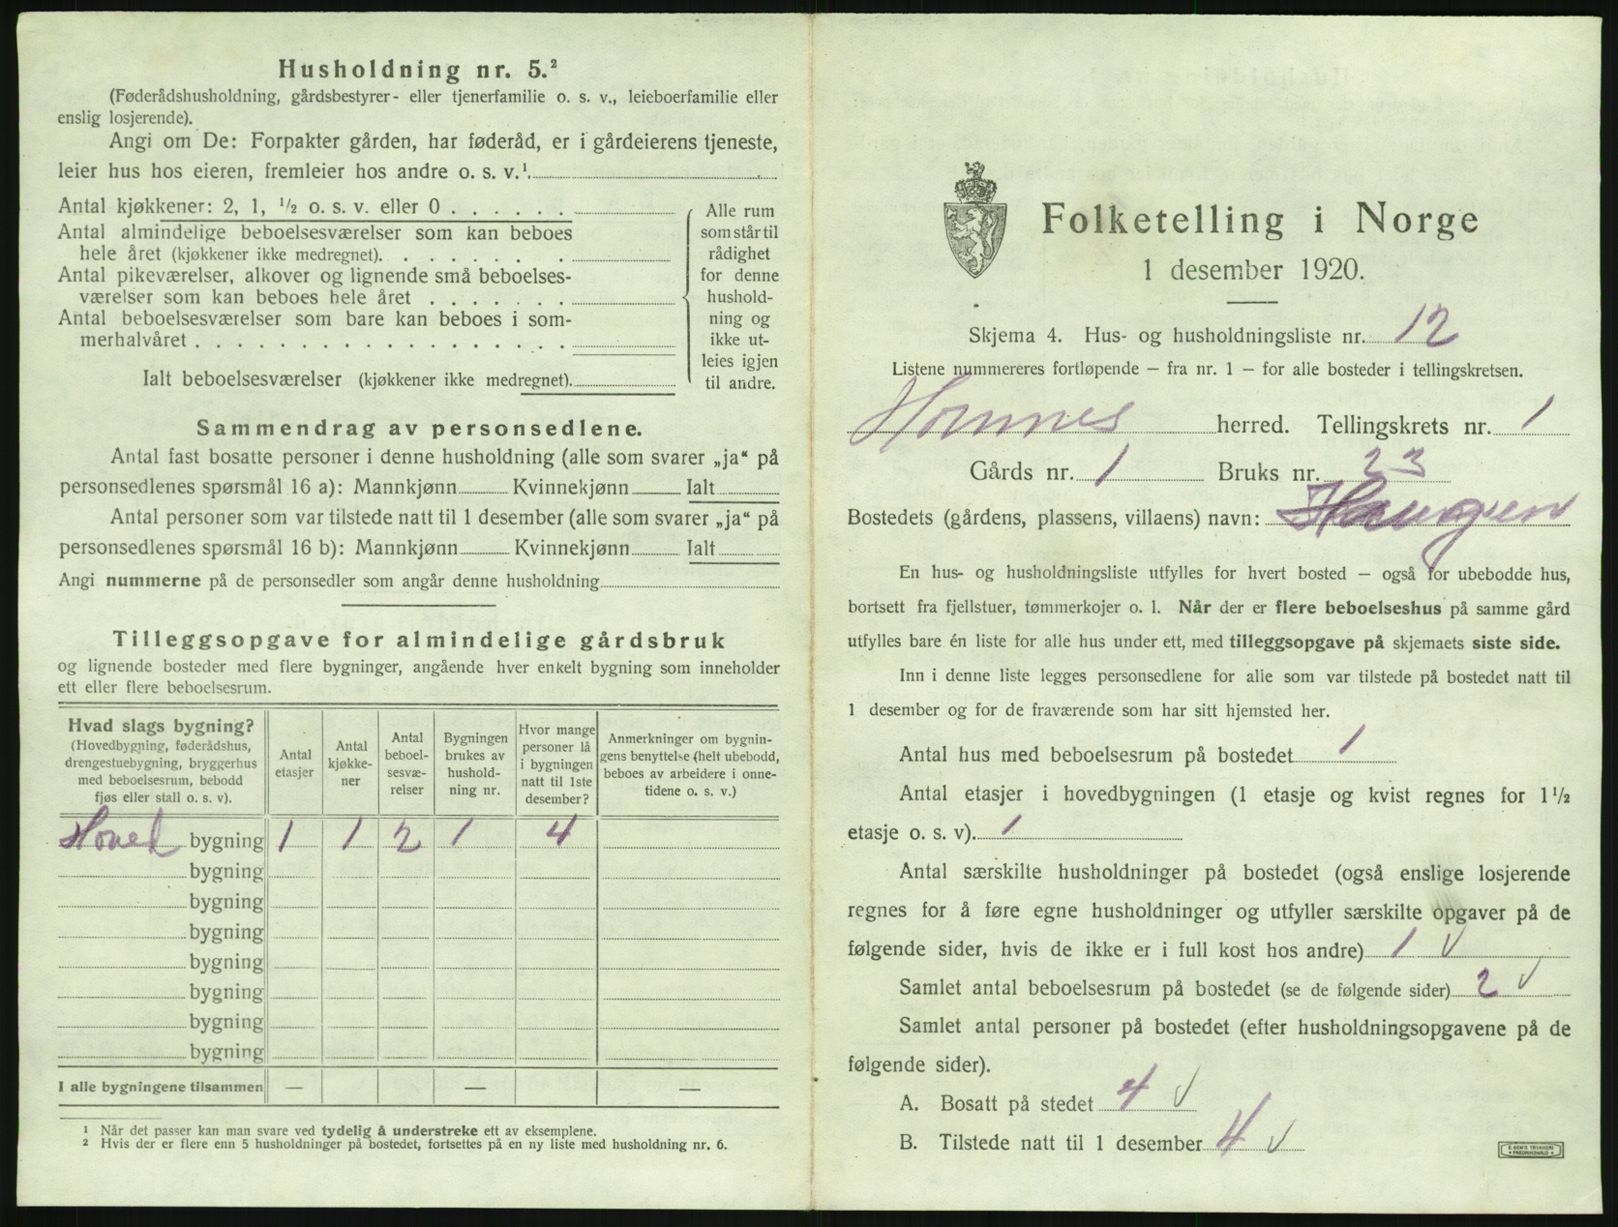 Husholdning nr. 5.²
(Føderådshusholdning, gårdsbestyrer- eller tjenerfamilie o. s. v., leieboerfamilie eller
enslig losjerende).
Angi om De: Forpakter gården, har føderåd, er i gårdeierens tjeneste,
leier hus hos eieren, fremleier hos andre o. s. v.¹
Antal kjøkkener: 2, 1, ½ o. s. v. eller 0 . . . . . .
Antal almindelige beboelsesværelser som kan beboes
hele året (kjøkkener ikke medregnet). . . . . . . .
Antal pikeværelser, alkover og lignende små beboelses-
værelser som kan beboes hele året . . . . . . .
Antal beboelsesværelser som bare kan beboes i som-
merhalvåret . . . . . . . . . . . . . . . . . .
Ialt beboelsesværelser (kjøkkener ikke medregnet).
Alle rum
som står til
rådighet
for denne
hushold-
ning og
ikke ut-
leies igjen
til andre.
Sammendrag av personsedlene.
Antal fast bosatte personer i denne husholdning (alle som svarer „ja“ på
personsedlenes spørsmål 16 a): Mannkjønn Kvinnekjønn Ialt
Antal personer som var tilstede natt til 1 desember (alle som svarer „ja“ på
personsedlenes spørsmål 16 b): Mannkjønn Kvinnekjønn Ialt
Angi nummerne på de personsedler som angår denne husholdning
Tilleggsopgave for almindelige gårdsbruk
og lignende bosteder med flere bygninger, angående hver enkelt bygning som inneholder
ett eller flere beboelsesrum.
Hvad slags bygning?
(Hovedbygning, føderådshus,
drengestuebygning, bryggerhus
med beboelsesrum, bebodd
fjøs eller stall o. s. v).
Antal
etasjer
Antal
kjøkke-
ner
Antal
beboel-
sesvæ-
relser
Bygningen
brukes av
hushold-
ning nr.
Hvor mange
personer lå
i bygningen
natt til 1ste
desember?
Anmerkninger om bygnin-
gens benyttelse (helt ubebodd,
beboes av arbeidere i onne-
tidene o. s. v.)
Hoved bygning 1 1 2 1 4
bygning
bygning
bygning
bygning
bygning
bygning
bygning
I alle bygningene tilsammen — — —
¹ Når det passer kan man svare ved tydelig å understreke ett av eksemplene.
² Hvis der er flere enn 5 husholdninger på bostedet, fortsettes på en ny liste med husholdning nr. 6.
Folketelling i Norge
1 desember 1920.
Skjema 4. Hus- og husholdningsliste nr. 12
Listene nummereres fortløpende — fra nr. 1 — for alle bosteder i tellingskretsen.
Hornnes herred. Tellingskrets nr. 1
Gårds nr. 1 Bruks nr. 23
Bostedets (gårdens, plassens, villaens) navn: Haugen
En hus- og husholdningsliste utfylles for hvert bosted — også for ubebodde hus,
bortsett fra fjellstuer, tømmerkojer o. l. Når der er flere beboelseshus på samme gård
utfylles bare én liste for alle hus under ett, med tilleggsopgave på skjemaets siste side.
Inn i denne liste legges personsedlene for alle som var tilstede på bostedet natt til
1 desember og for de fraværende som har sitt hjemsted her.
Antal hus med beboelsesrum på bostedet 1
Antal etasjer i hovedbygningen (1 etasje og kvist regnes for 1 ½
etasje o. s. v). 1
Antal særskilte husholdninger på bostedet (også enslige losjerende
regnes for å føre egne husholdninger og utfyller særskilte opgaver på de
følgende sider, hvis de ikke er i full kost hos andre) 1 √
Samlet antal beboelsesrum på bostedet (se de følgende sider) 2 √
Samlet antal personer på bostedet (efter husholdningsopgavene på de
følgende sider).
A. Bosatt på stedet 4 √
B. Tilstede natt til 1 desember 4 √